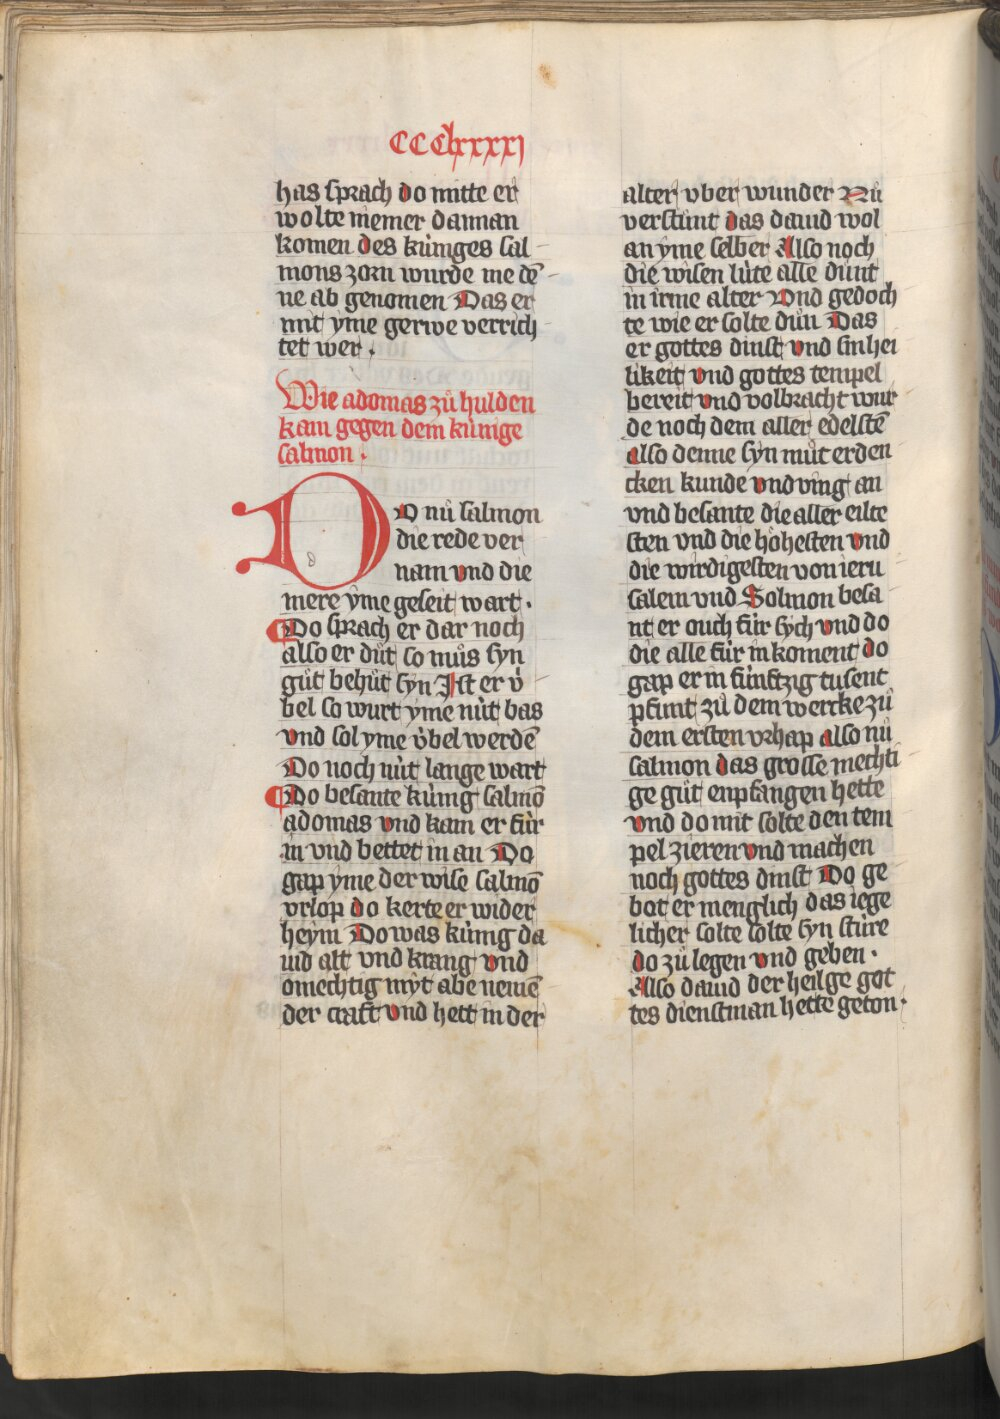 CCClxxxxj
has sprach do mitte er
wolte niemer dannan
komen des kúniges sal
mons zorn wurde me dē
ne ab genomen Das er
mit yme gerwe verrich
tet wer .
Wie adomas zů hulden
kam gegen dem kúnige
salmon .
DO nů salmon
die rede ver
nam vnd die
mere ẏme geseit wart .
Do sprach er dar noch
also er důt so můs syn
gůt behůt syn Jst er v̇
bel so wurt yme nút bas
vnd sol yme v̇bel werdē
Do noch nút lange wart
Do besante kúnig salmō
adomas vnd kam er fúr
in vnd bettet in an Do
gap yme der wise salmō
vrlop do kerte er wider
heym Do was kúnig da
uid alt vnd krang vnd
omechtig mẏt abe nemē
der craft vnd hett in der
alter vber wunder Nů
verstunt das dauid wol
an ẏme selber Also noch
die wisen lúte alle důnt
in irme alter Vnd gedoch
te wie er solte důn Das
er gottes dinst vnd sin hei
likeit vnd gottes tempel
bereit vnd volbracht wur
de noch dem aller edelstē
also denne syn můt erden
cken kunde vnd ving an
vnd besante die aller eilte
sten vnd die hōhesten vnd
die wirdigesten von ieru
salem vnd Solmon besa
nt er ouch fúr sych vnd do
die alle fúr in koment do
gap er in fúnftzig tusent
pfunt zů dem wercke zů
dem ersten vrhap also nů
salmon das grosse mechti
ge gůt enpfangen hette
vnd do mit solte den tem
pel zieren vnd machen
noch gottes dinst Do ge
bot er menglich das iege
licher solte solte syn stúre
do zů legen vnd geben .
Also dauid der heilge got
tes dienstman hette geton .